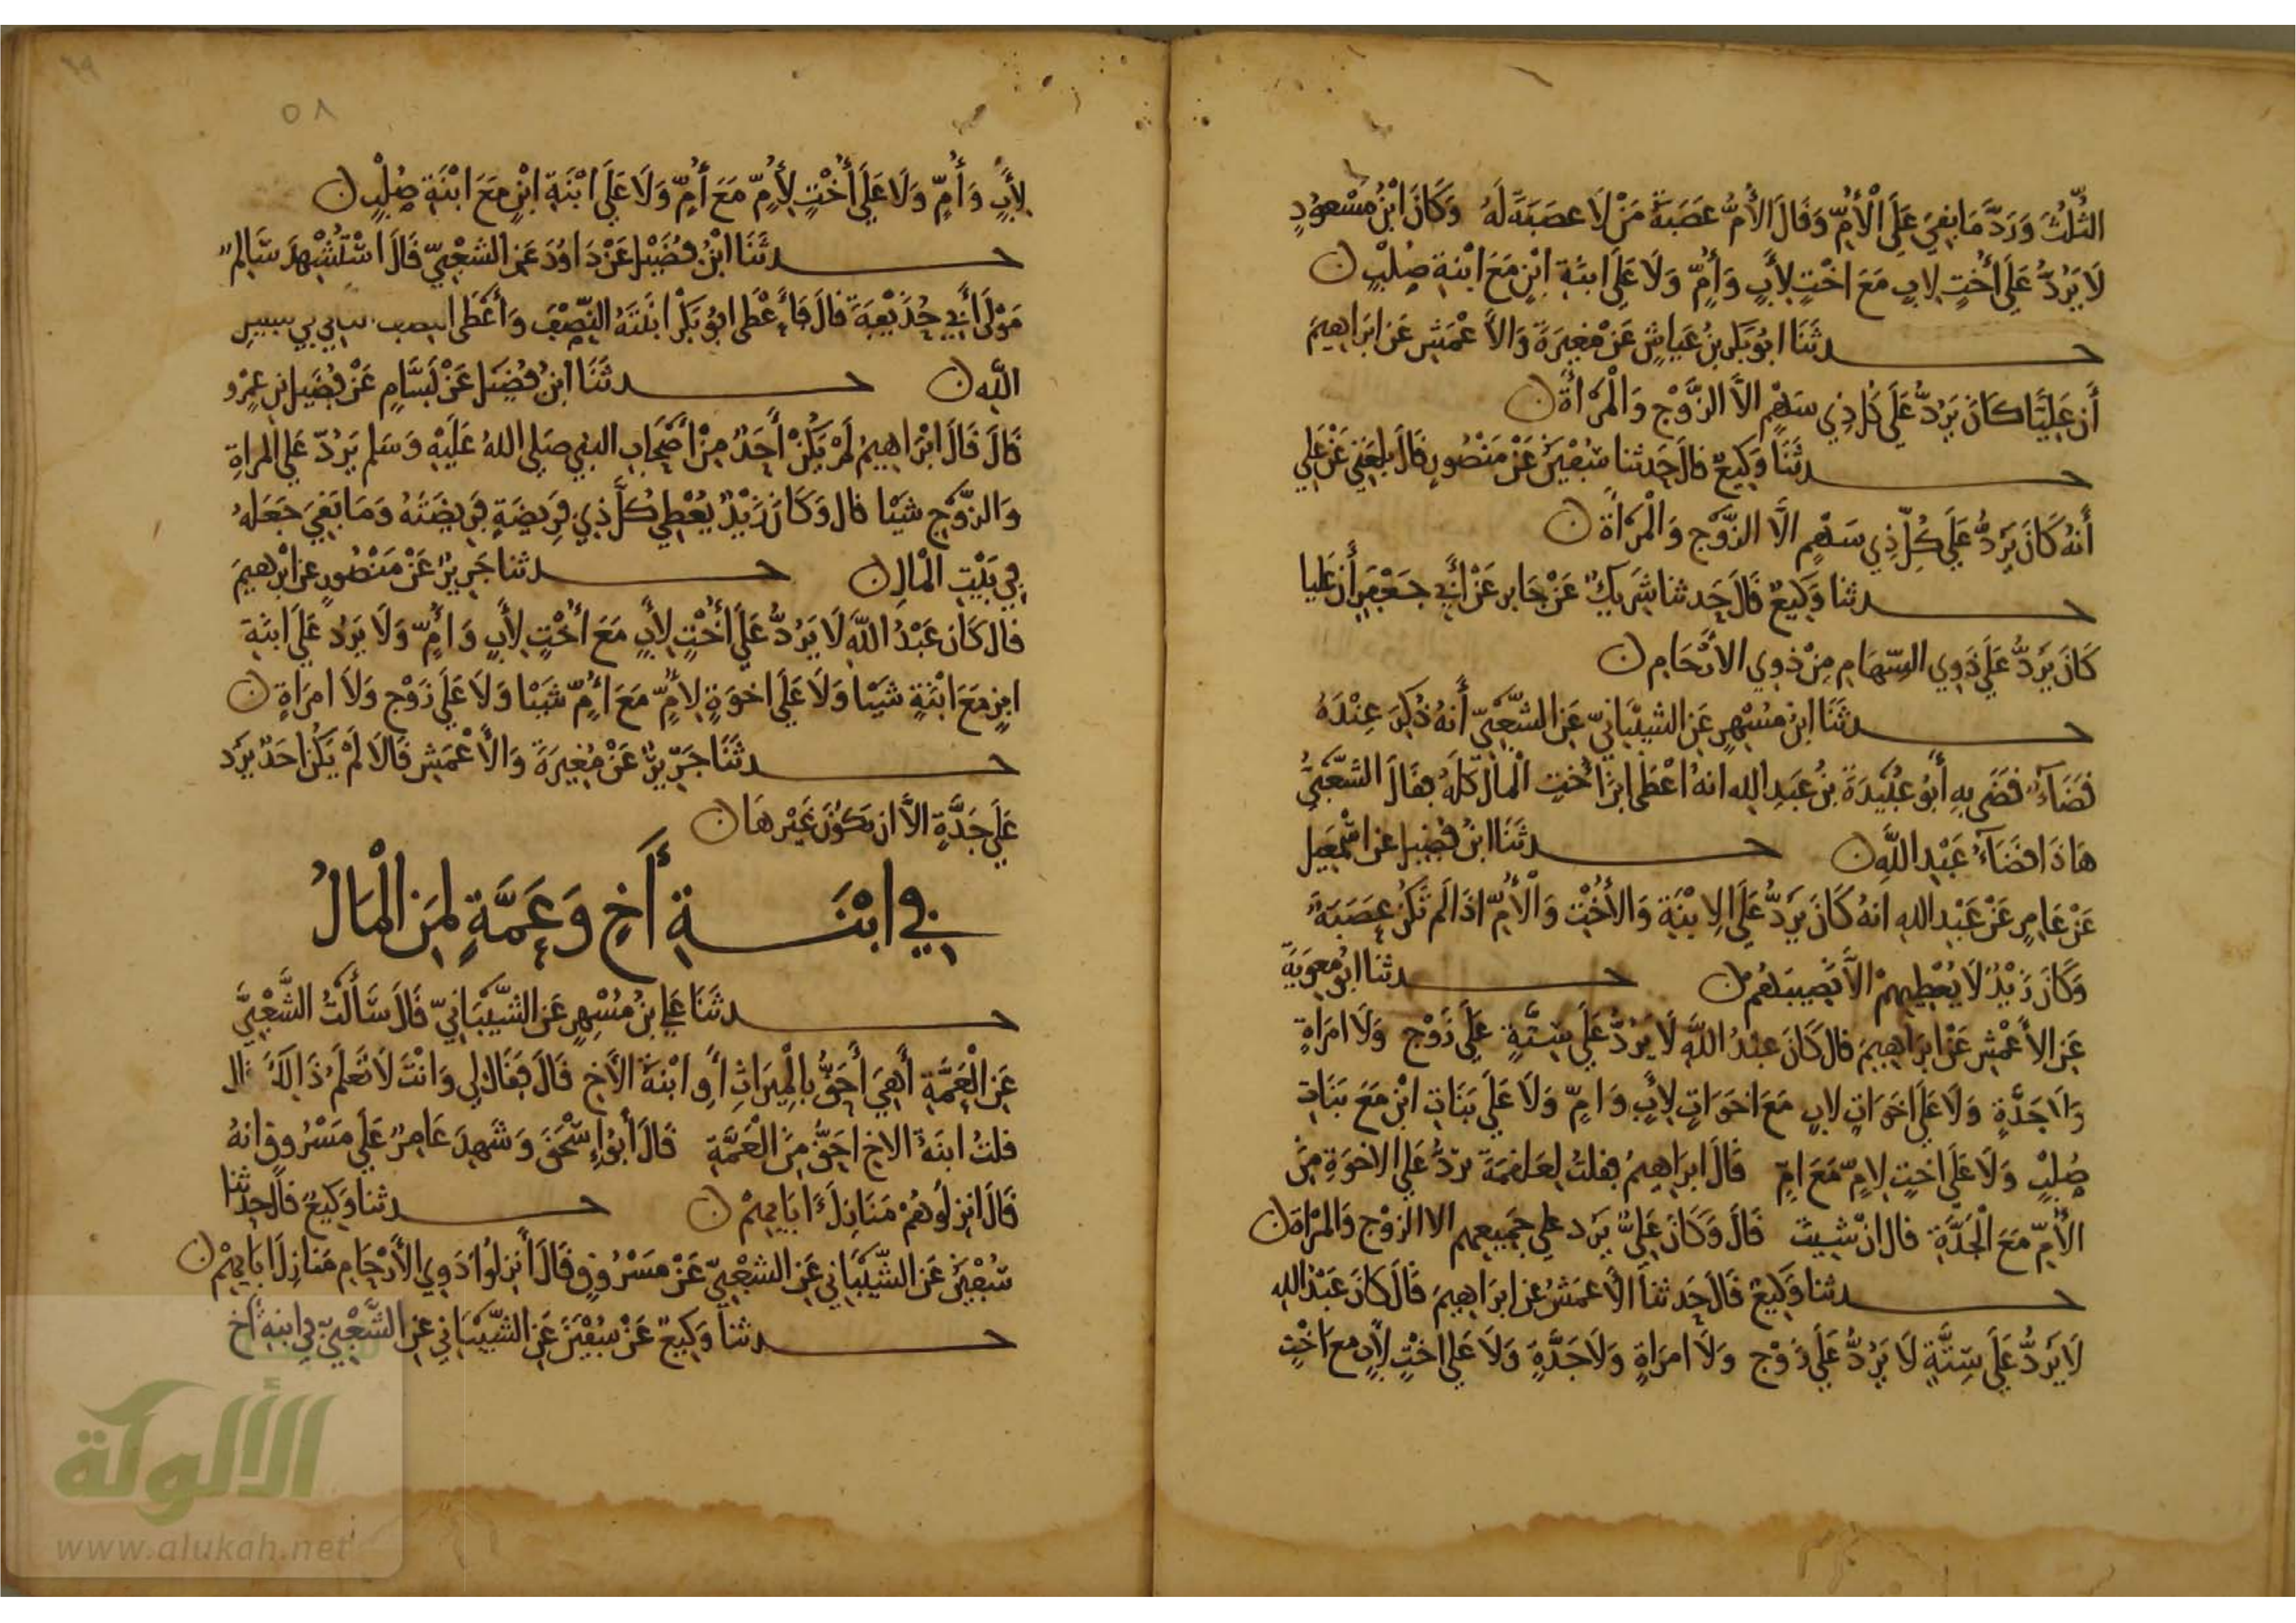 الثُّلُثَ وَرَدَّ مَا بَقِيَ عَلَى الْأُمِّ وَقَالَ الأُمُّ عَصَبَةُ مَنْ لَا عصَبَةَ لَهُ وَكَانَ ابْنُ مَسْعُودٍ
لَا يَرُدُّ عَلَى أُخْتٍ لِابٍ مَعَ اخْتٍ لِأَبٍ وَأُمٍّ وَلَا عَلَى ابنَةِ ابْنٍ مَعَ ابْنةِ صُلْبٍ
حدثَنَا ابُو بَكْرِ بنُ عَيَاشٍ عَنْ مُغِيرَةَ وَالأَعْمَشِ عَن ابرَاهِيمَ
أَن عَلِيًّا كَانَ يَرُدُّ عَلَى كُل ذِي سَهْمٍ الاَّ الزَّوْجِ وَالْمَرْأَةِ
حدثَنَا وَكِيعٌ قالَ حَدثنا سُفْيَنُ عَنْ مَنْصُورٍ قَالَ بلغَنِي عَنْ عَلِي
أَنهُ كَانَ يَرُدُّ عَلَى كُلِّ ذِي سَهْمٍ الاَّ الزَّوْجَ وَالْمَرْأَةَ
حدثنا وَكِيعٌ قَالَ حَدثنا شَرِيكٌ عَنْ جَابرٍ عَنْ أَبِي جَعْفَرٍ أَن عَليا
كَانَ يَرُدُّ عَلَى ذَوِي السِّهَامِ مِنْ ذَوِي الأَرْحَامِ
حدثَنَا ابنُ مُسْهِرٍ عَنِ الشيْبَانِيِّ عَنِ الشَّعْبِيِّ أَنهُ ذُكِرَ عِنْدَهُ
قَضَآءٌ قَضَى بِهِ أَبُو عُبَيْدَةَ بنُ عَبدِ الله انهُ اعْطَى ابنَةَ أُخْتٍ الْمَالَ كلَّهُ فقَالَ الشَّعْبيُّ
هَاذَا قضَآءُ عَبْدِ اللَّهِ حدثَنَا ابنُ فُضَيلٍ عن اسْمعِيل
عَنْ عَامِرٍ عَنْ عَبْدِ اللهِ انهُ كَانَ يَرُدُّ عَلَى الِابْنَةِ وَالأُخْتِ وَالْأُمِّ اذَا لَم تَكُنْ عَصَبَةٌ
وَكَانَ زَيْدٌ لَا يُعْطِيهِمْ الاَّ نَصِيبَهُم حدثنا ابُو معوِيَةَ
عَنِ الأَعْمَشِ عَنْ ابرَاهِيمَ قال كَانَ عبدُ اللَّهِ لَا يَرُدُّ عَلَى سِتَّةٍ عَلَى زَوْجٍ وَلَا امرَاةٍ
وَلَا جَدَّةٍ وَلَا عَلَى اخَوَاتٍ لِابٍ مَعَ اخَوَاتٍ لِأَبٍ وَامٍّ وَلَا عَلَى بَنَاتِ ابْنٍ مَعَ بَنَاتِ
صُلْبٍ وَلَا عَلَى اخْتٍ لِامٍّ مَعَ امٍّ قَالَ ابرَاهِيمُ فقلتُ لِعَلقمَةَ نردُّ عَلَى الاخوَةِ مِنَ
الْأُمِّ مَعَ الْجَدَّةِ قال انْ شِيتَ قَالَ وَكَانَ عَلِيٌّ يَرُد علي جَمِيعهم الا الزوْج وَالمَرْاة
حدثنا وَكِيعٌ قَالَ حَدثنا الأَعمَشُ عن ابرَاهِيمَ قَالَ كَانَ عَبْدُ الله
لَا يَرُدُّ عَلَى سِتَّةٍ لَا يَرُدُّ عَلَى زَوْجٍ وَلَا امرَاةٍ وَلَا جَدَّةٍ وَلَا عَلَى اخْتٍ لِأَبٍ مع اخْتٍ
٥٨
لِأَبٍ وَأُمٍّ وَلَا عَلَى أُخْتٍ لِأُمٍّ مَعَ أُمٍّ وَلَا عَلَى ابْنَةِ ابْنٍ مَعَ ابْنَةِ صُلْبٍ
حدثَنَا ابْنُ فُضَيْلٍ عَنْ دَاوُدَ عَنِ الشعْبِيِّ قَالَ اسْتُشْهِدَ سَالِمٌ
مَوْلَى أَبِي حُذَيْفَةَ قالَ فَأَعْطَى ابُو بَكْرٍ ابْنَتَهُ النِّصْفَ وَأَعْطَى النصف الثاني في سبيل
اللَّهِ حدثَنَا ابنُ فُضَيلٍ عَنْ بَسَّامٍ عَنْ فُضَيلِ بنِ عَمْرٍو
قَالَ قَالَ ابْرَاهِيمُ لَمْ يَكُنْ أَحَدٌ مِنْ أَصْحَابِ النبي صَلى اللهُ عَلَيْهِ وَسَلم يَرُدُّ عَلى المراةِ
وَالزَّوْجِ شَيْا قال وَكَانَ زَيْدٌ يُعْطِي كُلَّ ذِي فَرِيضَةٍ فَرِيضَتَهُ وَمَا بَقِيَ جَعَلهُ
فِي بَيْتِ الْمَالِ حدثنا جَرِيرٌ عَنْ مَنْصُورٍ عن ابْرهيمَ
قال كَانَ عَبْدُ اللَّهِ لَا يَرُدُّ عَلَى أُخْتٍ لِأَبٍ مَعَ أُخْتٍ لِأَبٍ وَأُمٍّ وَلَا يَرُد عَلَى ابنَةِ
ابنٍ مَعَ ابْنَةٍ شَيْا وَلَا عَلَى اخوَةٍ لِأُمٍّ مَعَ أُمٍّ شَيْا وَلَا عَلَى زَوْجٍ وَلَا امرَاةٍ
حدثَنَا جَرِيرٌ عَنْ مُغِيرَةَ وَالأَعْمَشِ قَالَا لَمْ يَكُن احَدٌ يَرُد
عَلَى جَدَّةٍ الاَّ ان يَكُونَ غَيْرهَا
فِي ابْنَةِ أَخٍ وَعَمَّةٍ لِمَنِ الْمَالُ
حدثَنَا عَلِي بنُ مُسْهِرٍ عَنِ الشَّيْبَانِيِّ قَالَ سَأَلْتُ الشَّعْبِيَّ
عَنِ الْعَمَّةِ أَهِيَ أَحَقُّ بِالْمِيرَاثِ أَوِ ابْنَةُ الأَخِ قَالَ فَقَالَ لِي وَانْتَ لَا تَعْلَمُ ذَالِكَ قال
قلتُ ابنَةُ الاخ احَقُّ مِنَ الْعَمَّةِ قَالَ أَبُو إِسْحَقَ وَشَهِدَ عَامِرٌ عَلَى مَسْرُوقٍ انهُ
قَالَ انزِلُوهُمْ مَنَازِلَ ءَابَايِهِمْ حدثنا وَكِيعٌ قال حدثنا
سُفْيَنُ عَنِ الشَّيْبَانِي عَنِ الشعْبِيِّ عَنْ مَسْرُوقٍ قَالَ أَنزِلُوا ذَوِي الأَرْحَامِ مَنَازِلَ ابَايِهِمْ
حدثنا وَكِيعٌ عَنْ سُفْيَنَ عَنِ الشَّيْبَانِي عَنِ الشَّعْبِيِّ فِي ابنةِ أَخٍ
الألوكة
www.alukah.net